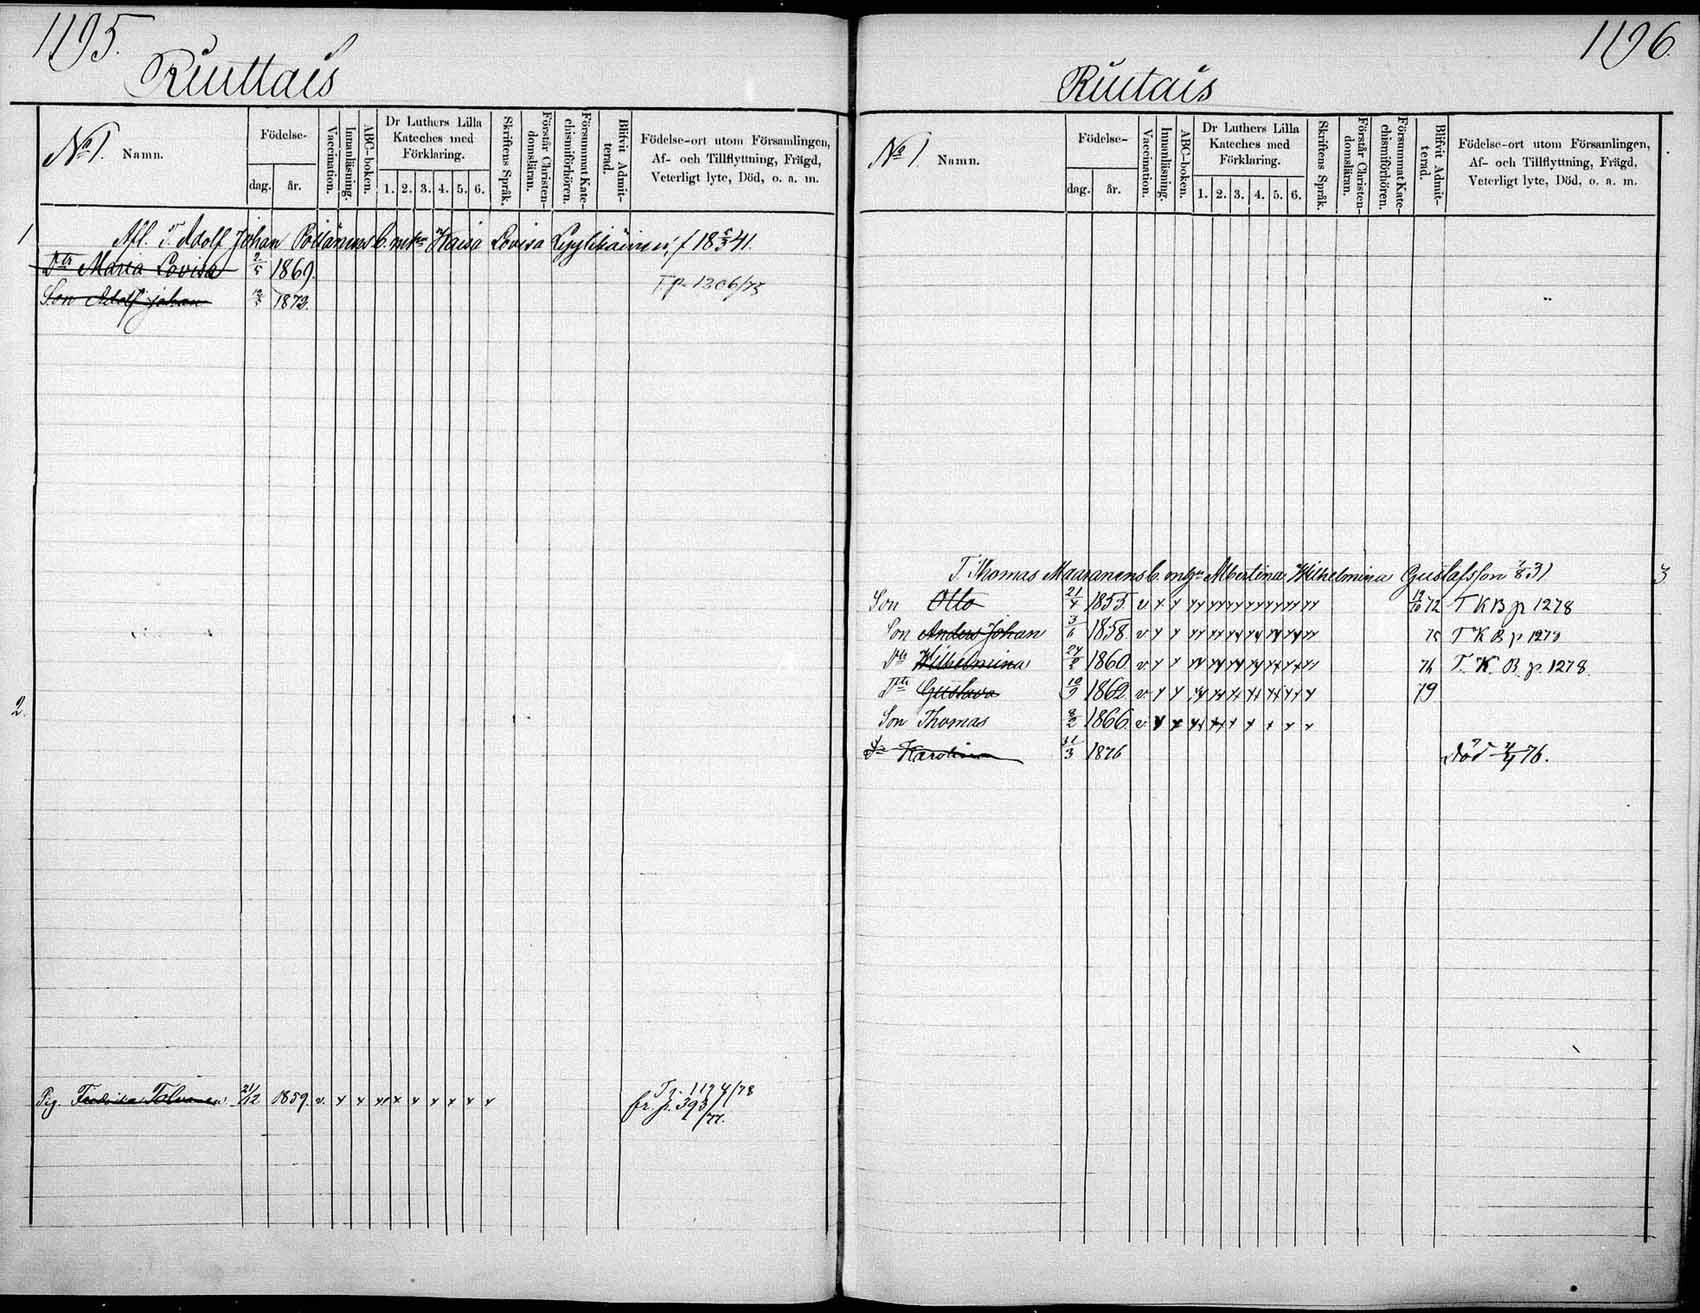 1195.
Ruuttais
No 1. Namn.
Födelse-
dag. år.
Vaccination.
Innanläsning.
ABC-boken.
Dr Luthers Lilla
Kateches med
Förklaring.
1. 2. 3. 4. 5. 6.
Skriftens Språk.
Förstår Christen-
domsläran.
Försummat Kate-
chismiförhören.
Blifvit Admit-
terad.
Födelse-ort utom Församlingen,
Af- och Tillflyttning, Frägd,
Veterligt lyte, Död, o. a. m.
1 Afl. T. Adolf Johan Pöllänens b. m. Enka Kaisa Lovisa f. 18 41.
Dtr Maria Lovisa 2/5 1869.
T. p. 1306/75
Son Adolf Johan 1873.
2.
Pig. Fredrika Tolvanen 21/12 1859. v. x x x x x x x x x
T. p. 1194/78
fr. p. 393/77.
1196.
Ruutais
No 1. Namn.
Födelse-
dag. år.
Vaccination.
Innanläsning.
ABC-boken.
Dr Luthers Lilla
Kateches med
Förklaring.
1. 2. 3. 4. 5. 6.
Skriftens Språk.
Förstår Christen-
domsläran.
Försummat Kate-
chismiförhören.
Blifvit Admit-
terad.
Födelse-ort utom Församlingen,
Af- och Tillflyttning, Frägd,
Veterligt lyte, Död, o. a. m.
T. Thomas Maaranens b. m. Albertina Wilhelmina Gustafsson 31 3
Son Otto 21/4 1855 v x x 72 T K B p 1278
Son Anders Johan 3/6 1858 v x x 75 T K B p 1273
Dtr Wilhelmina 24/2 1860 v x x 76 T. K. B. p. 1278
Dtr Gustava 10/9 1862 v x x 79
Son Thomas 8/2 1866 v x x
Dr Karolina 31/3 1876 Död 76.